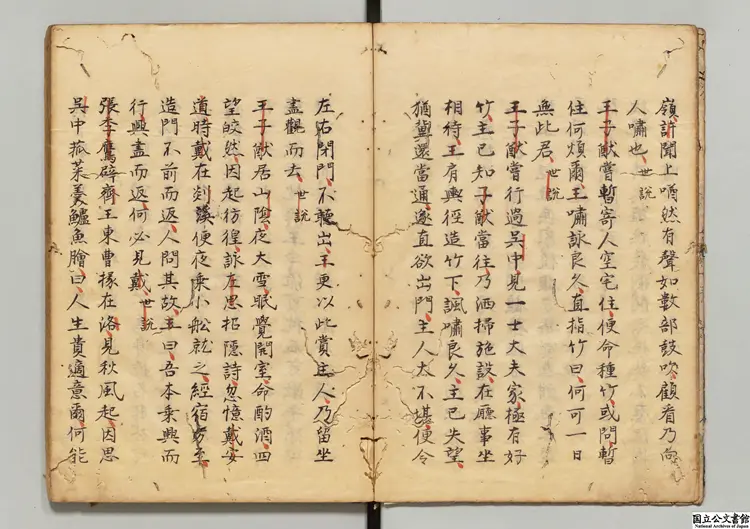 嶺許聞上㗜然有聲如數部鼓吹顧看乃向
人嘯也世説
王子猷嘗暫寄人空宅住便命種竹或問暫
住何煩爾王嘯詠良久直指竹曰何可一日
無此君世説
王子猷嘗行過吳中見一士大夫家極有好
竹主已知子猷當往乃洒掃施設在廳事坐
相待王肩輿徑造竹下諷嘯良久主已失望
猶冀還當通遂直欲出門主人大不堪便令
左右閉門不聽出王更以此賞主人乃留坐
盡歡而去世説
王子猷居山陰夜大雪眠覺開室命酌酒四
望皎然因起彷徨詠左思招隱詩忽憶戴安
道時戴在剡溪便夜乘小船就之經宿方至
造門不前而返人問其故王曰吾本乘興而
行興盡而返何必見戴世説
張季鷹辟齊王東曹掾在洛見秋風起因思
吳中菰菜羮鱸魚膾曰人生貴適意爾何能
国立公文書館
National Archives of Japan